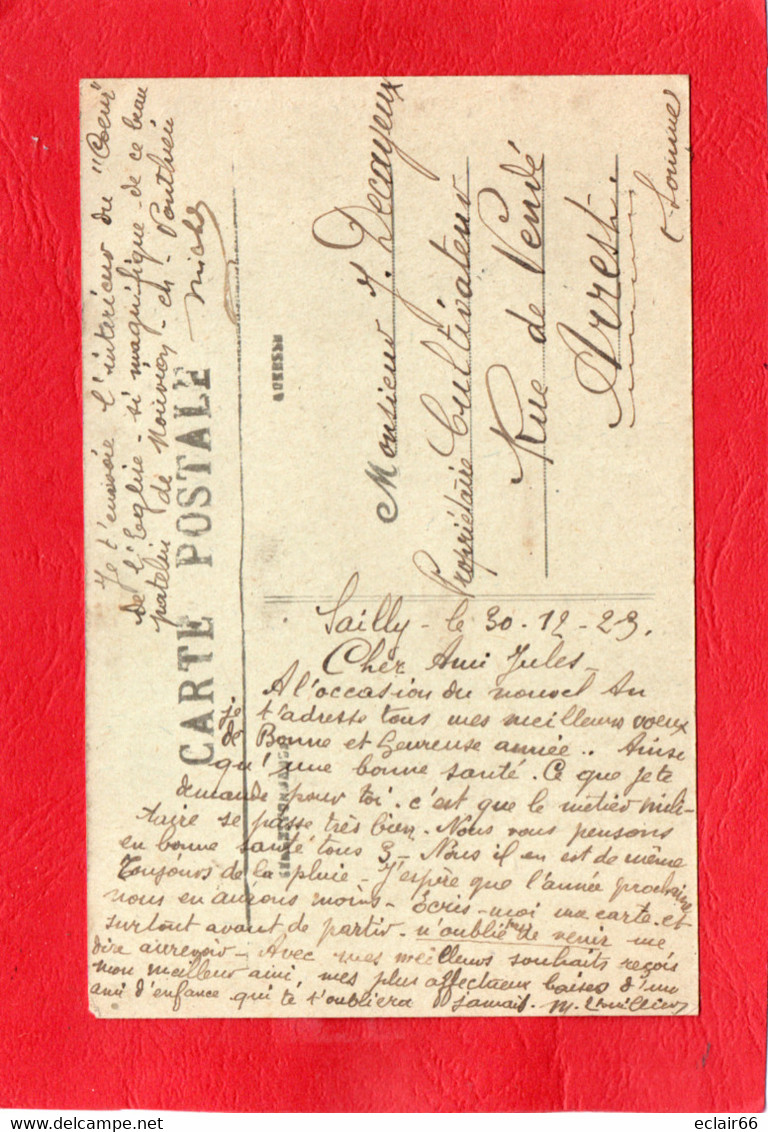 Je t'envoie l'interieur du "Coeur"
de l'Eglise - si magnifique - de ce beau
patelin de Nouvion - en - Ponthieu
CARTE POSTALE
ADRESSE
CORRESPONDANCE
Monsieur J. Decayeux
Propriétaire Cultivateur
Rue de Vendé
Arrest.
(Somme
Sailly - le 30-12-23.
Cher Ami Jules -
A l'occasion du nouvel An
je t'adresse tous mes meilleurs voeux
de Bonne et heureuse année.. Ainsi
qu'une bonne santé. Ce que je te
demande pour toi. c'est que le métier mili-
taire se passe très bien. Nous vous pensons
en bonne santé tous 3 - Nous il en est de même
Toujours de la pluie - J'espère que l'année prochaine
nous en aurons moins - Ecris-moi une carte. et
surtout avant de partir. n'oublie de venir me
dire aurevoir - Avec mes meilleurs souhaits reçois
mon meilleur ami, mes plus affectueux baisers d'un
ami d'enfance qui te t'oubliera jamais. M.
eclair66